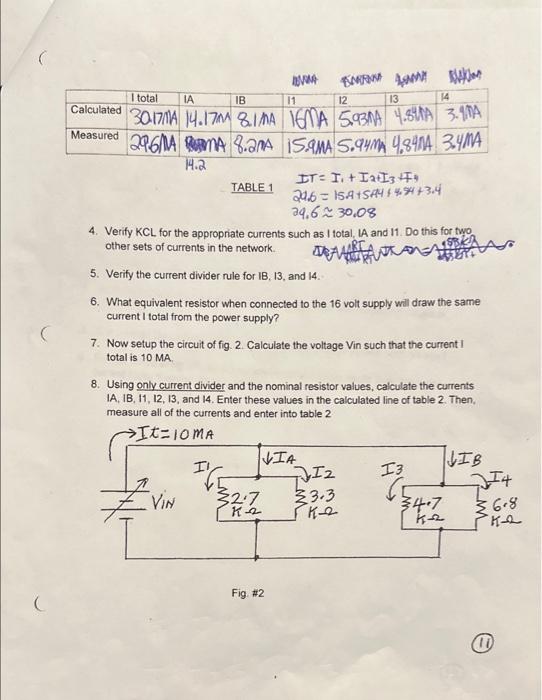 I total IA IB I1 I2 I3 I4
Calculated 30.17MA 14.17MA 8.1MA 16MA 5.93MA 4.84MA 3.4MA
Measured 29.6MA MA 8.2MA 15.9MA 5.94MA 4.84MA 3.4MA
14.2
TABLE 1
IT = I1 + I2+I3+I4
29.6 = 15.9+5.94+4.84+3.4
29.6 ≈ 30.08
4. Verify KCL for the appropriate currents such as I total, IA and I1. Do this for two
other sets of currents in the network.
5. Verify the current divider rule for IB, I3, and I4.
6. What equivalent resistor when connected to the 16 volt supply will draw the same
current I total from the power supply?
7. Now setup the circuit of fig. 2. Calculate the voltage Vin such that the current I
total is 10 MA.
8. Using only current divider and the nominal resistor values, calculate the currents
IA, IB, I1, I2, I3, and I4. Enter these values in the calculated line of table 2. Then,
measure all of the currents and enter into table 2
It=10MA
I1 ↓IA I2 I3 ↓IB I4
VIN 2.7 KΩ 3.3 KΩ 4.7 KΩ 6.8 KΩ
Fig. #2
11